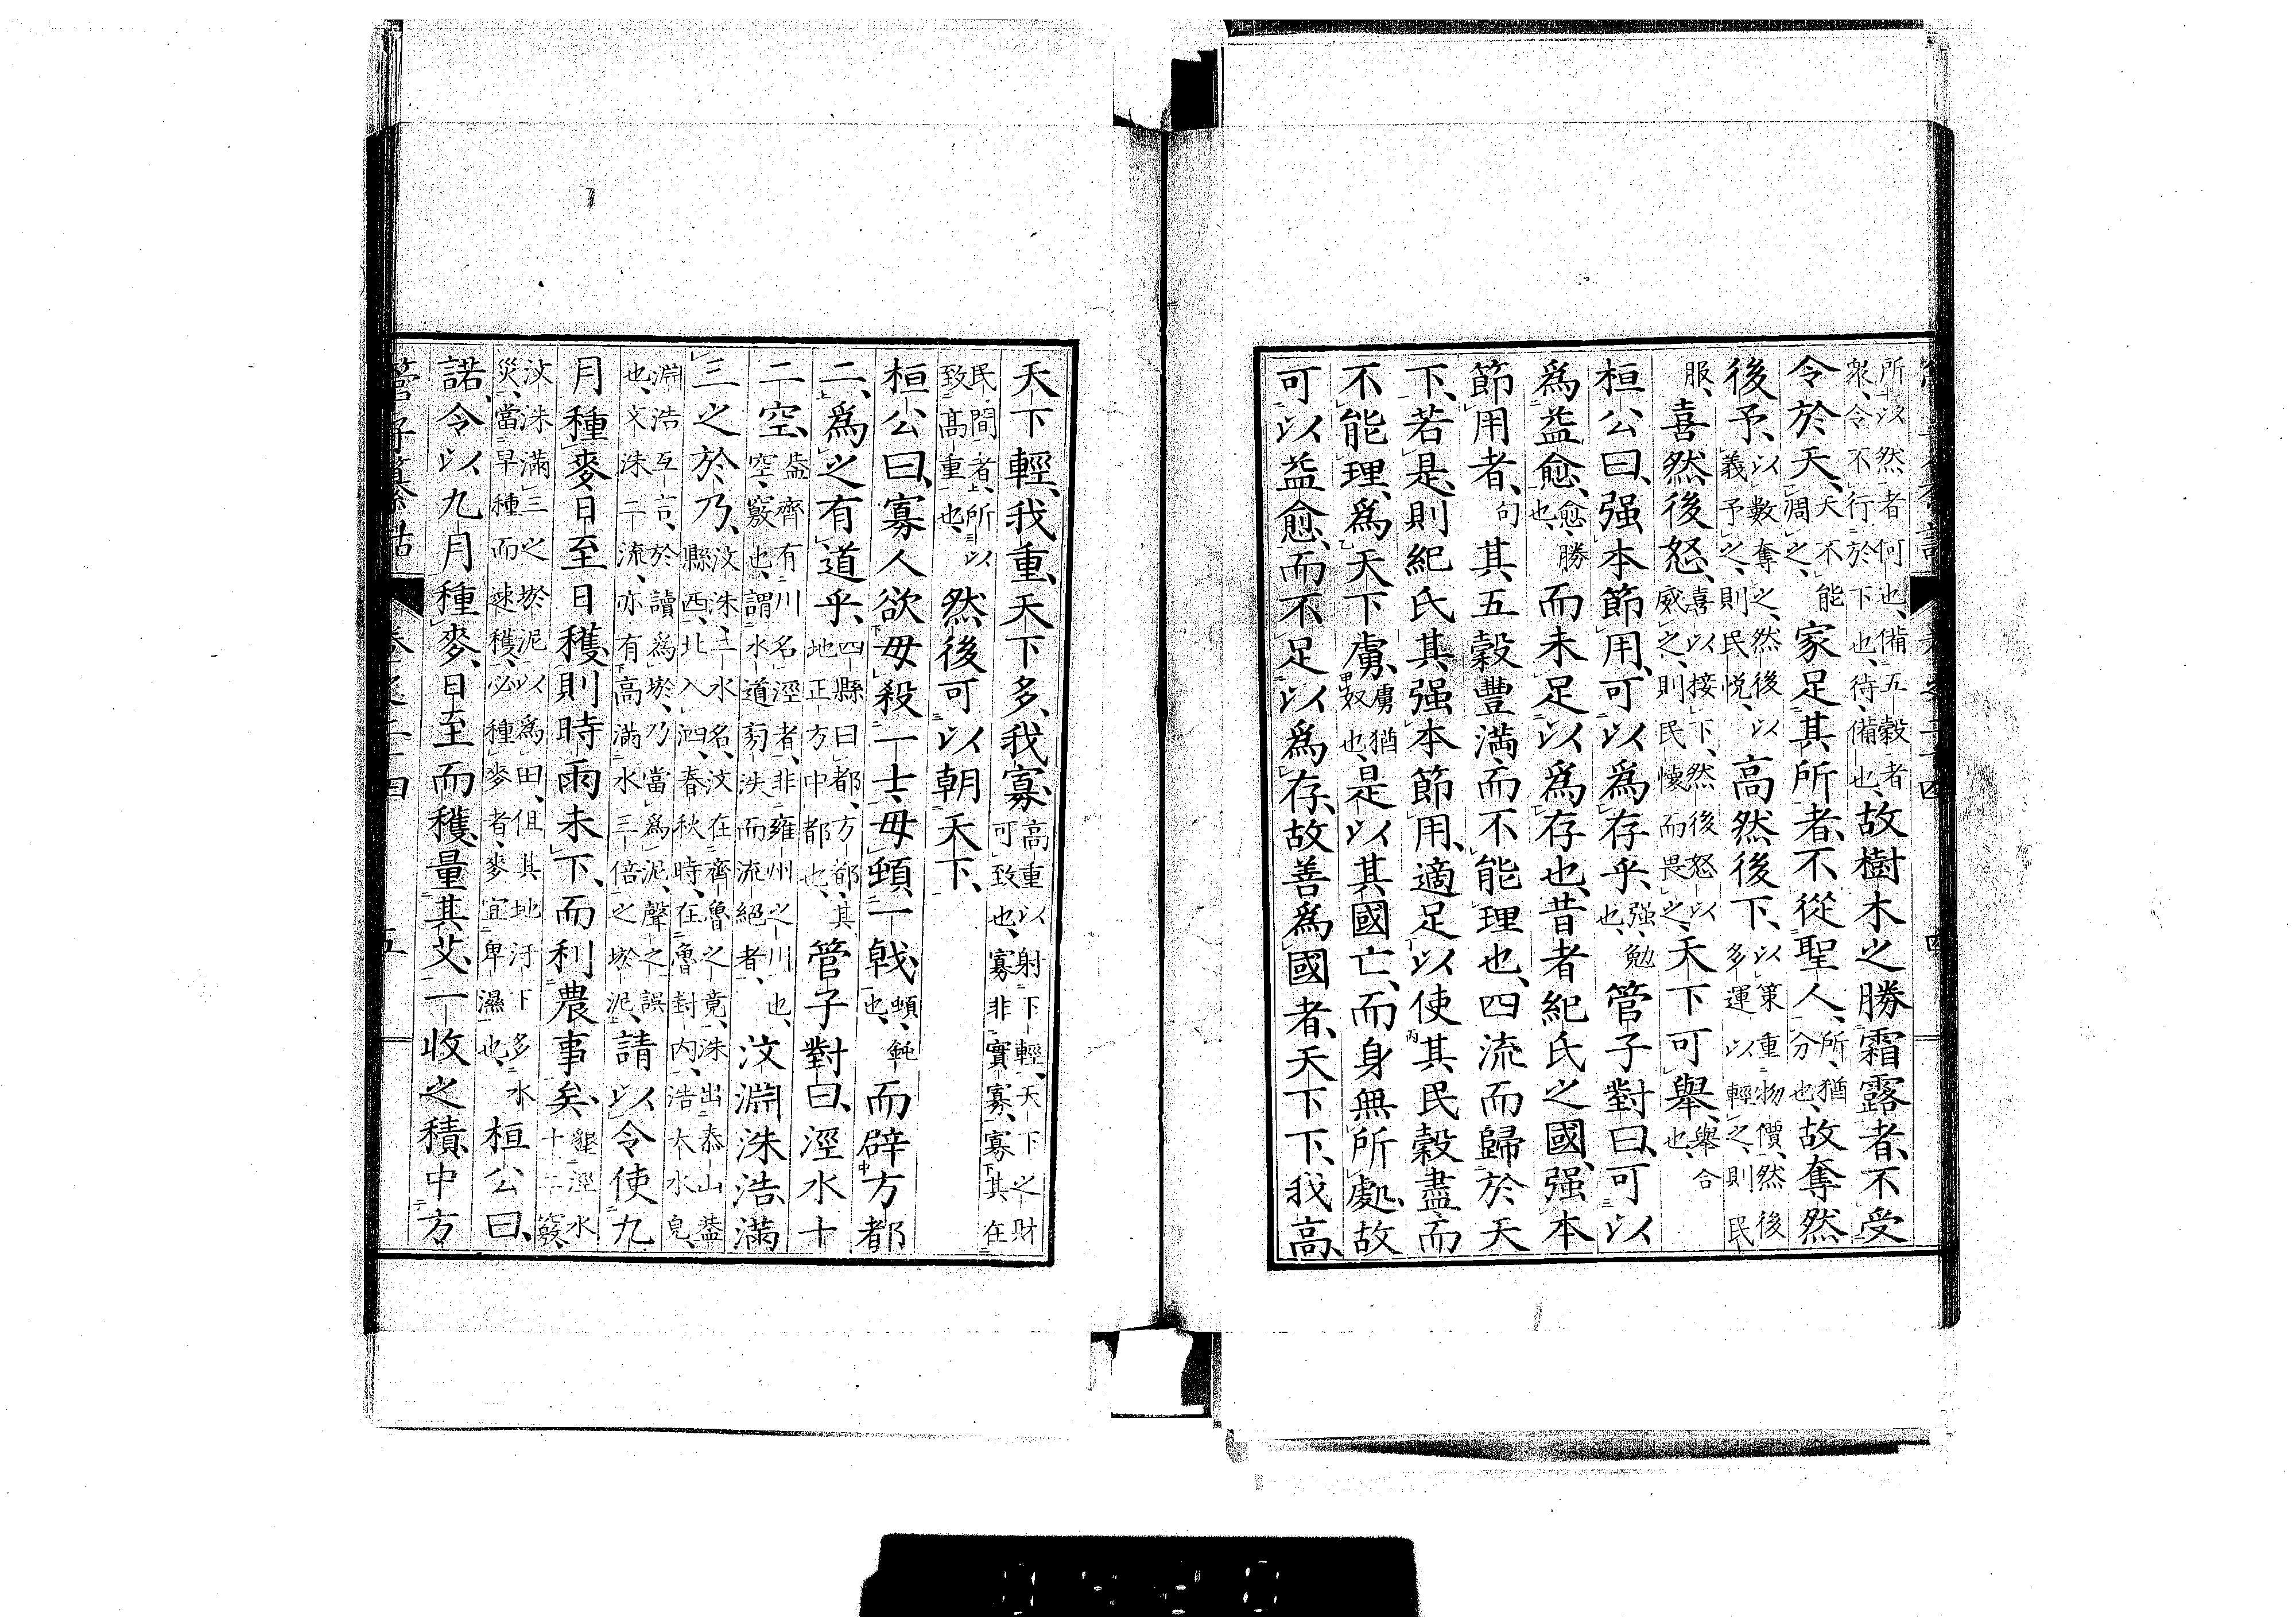 所以然者何也、備五穀者
衆、令不行於下也、待、備也、故樹木之勝霜露者、不受
令於天、天不能凋之、家足其所者、不從聖人、所、猶分也、故奪然
後予、以數奪之、然後以義予之、則民悅、高然後下、以策重物價、然後多運以輕之、則民
服、喜然後怒、喜以接下、然後怒以威之、則民懷而畏之、天下可舉、舉、合也、
桓公曰、强本節用、可以爲存乎、强、勉也、管子對曰、可以
爲益愈、愈、勝也、而未足以爲存也、昔者紀氏之國、强本
節用者、句其五穀豐滿、而不能理也、四流而歸於天
下、若是、則紀氏其强本節用、適足以使其民穀盡、而
不能理、爲天下虜、虜猶奴也、是以其國亡、而身無所處、故
可以益愈、而不足以爲存、故善爲國者、天下下、我高、
天下輕、我重、天下多、我寡、高重以射下輕、天下之財可致也、寡非實寡、寡其在
民間者、所以致高重也、然後可以朝天下、
桓公曰、寡人欲毋殺一士、毋頓一戟、頓、鈍也、而辟方都
二、爲之有道乎、四縣曰都、方都、其地正方中都也、管子對曰、涇水十
二空、蓋齊有川名涇者、非雍州之川也、空、竅也、謂水道別決而流絕者、汶淵洙浩滿
三之於、乃、汶洙、二水名、汶在齊魯之竟、洙出泰山蓋縣西、北入泗、春秋時、在魯對內、浩木水皃、
淵浩互言、於讀爲淤、乃當爲泥、聲之誤也、文洙二流、亦有高滿水三倍之淤泥、請以令使九
月種麥、日至日穫、則時雨未下、而利農事矣、墾涇水十二竅、
汶洙滿三之淤泥以爲田、但其地汙下多水災、當早種而速穫、必種麥者、麥宜卑濕也、桓公曰、
諾、令以九月種麥、日至而穫、量其艾、一收之積、中方
管子纂詁 卷之二十四 五